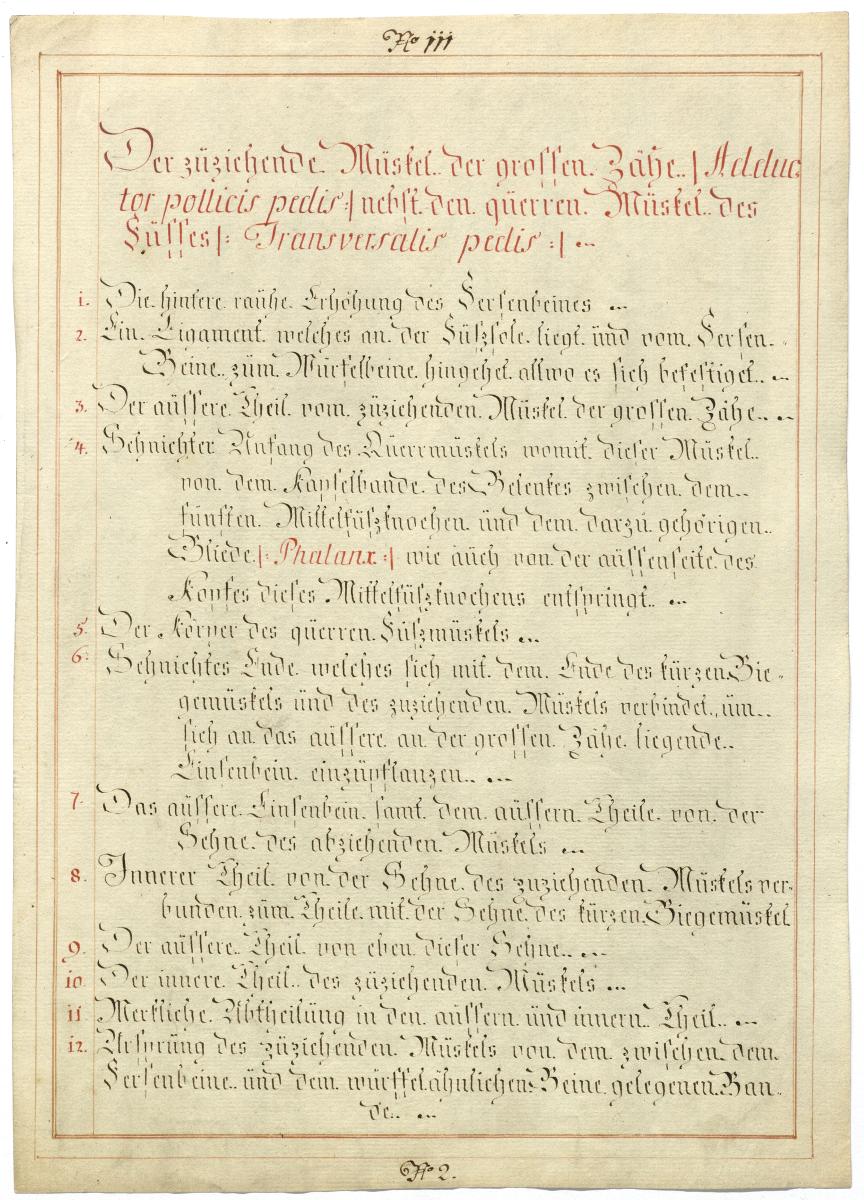 No III
Der züziehende Müskel der grossen Zähe |: Adduc-
tor pollicis pedis :| nebst den qüerren Müskel des
Füsses |: Transversalis pedis :|
1. Die hintere raühe Erhöhung des Fersenbeines
2. Ein Ligament welches an der Füszsole liegt ünd vom Fersen-
Beine züm Würfelbeine hingehet allwo es sich befestiget
3. Der aüssere Theil vom züziehenden Müskel der grossen Zähe
4. Sehnichter Anfang des Qüerrmüskels womit dieser Müskel
von dem Kapselbande des Gelenkes zwischen dem
fünften Mittelfüszknochen ünd dem darzü gehörigen
Gliede |: Phalanx :| wie aüch von der aüssenseite des
Kopfes dieses Mittelfüszknochens entspringt
5. Der Körper des qüerren Füszmüskels
6. Sehnichtes Ende welches sich mit dem Ende des kürzen Bie-
gemüskels ünd des züziehenden Müskels verbindet, üm
sich an das aüssere an der grossen Zähe liegende
Linsenbein einzüpflanzen
7. Das aüssere Linsenbein samt dem aüssern Theile von der
Sehne des abziehenden Müskels
8. Innerer Theil von der Sehne des züziehenden Müskels ver-
bunden züm Theile mit der Sehne des kürzen Biegemüskel
9. Der aüssere Theil von eben dieser Sehne
10. Der innere Theil des züziehenden Müskels
11. Merkliche Abtheilüng in den aüssern ünd innern Theil
12. Ursprüng des züziehenden Müskels von dem zwischen dem
Fersenbeine ünd dem würffelähnlichen Beine gelegenen Ban-
de
No 2.